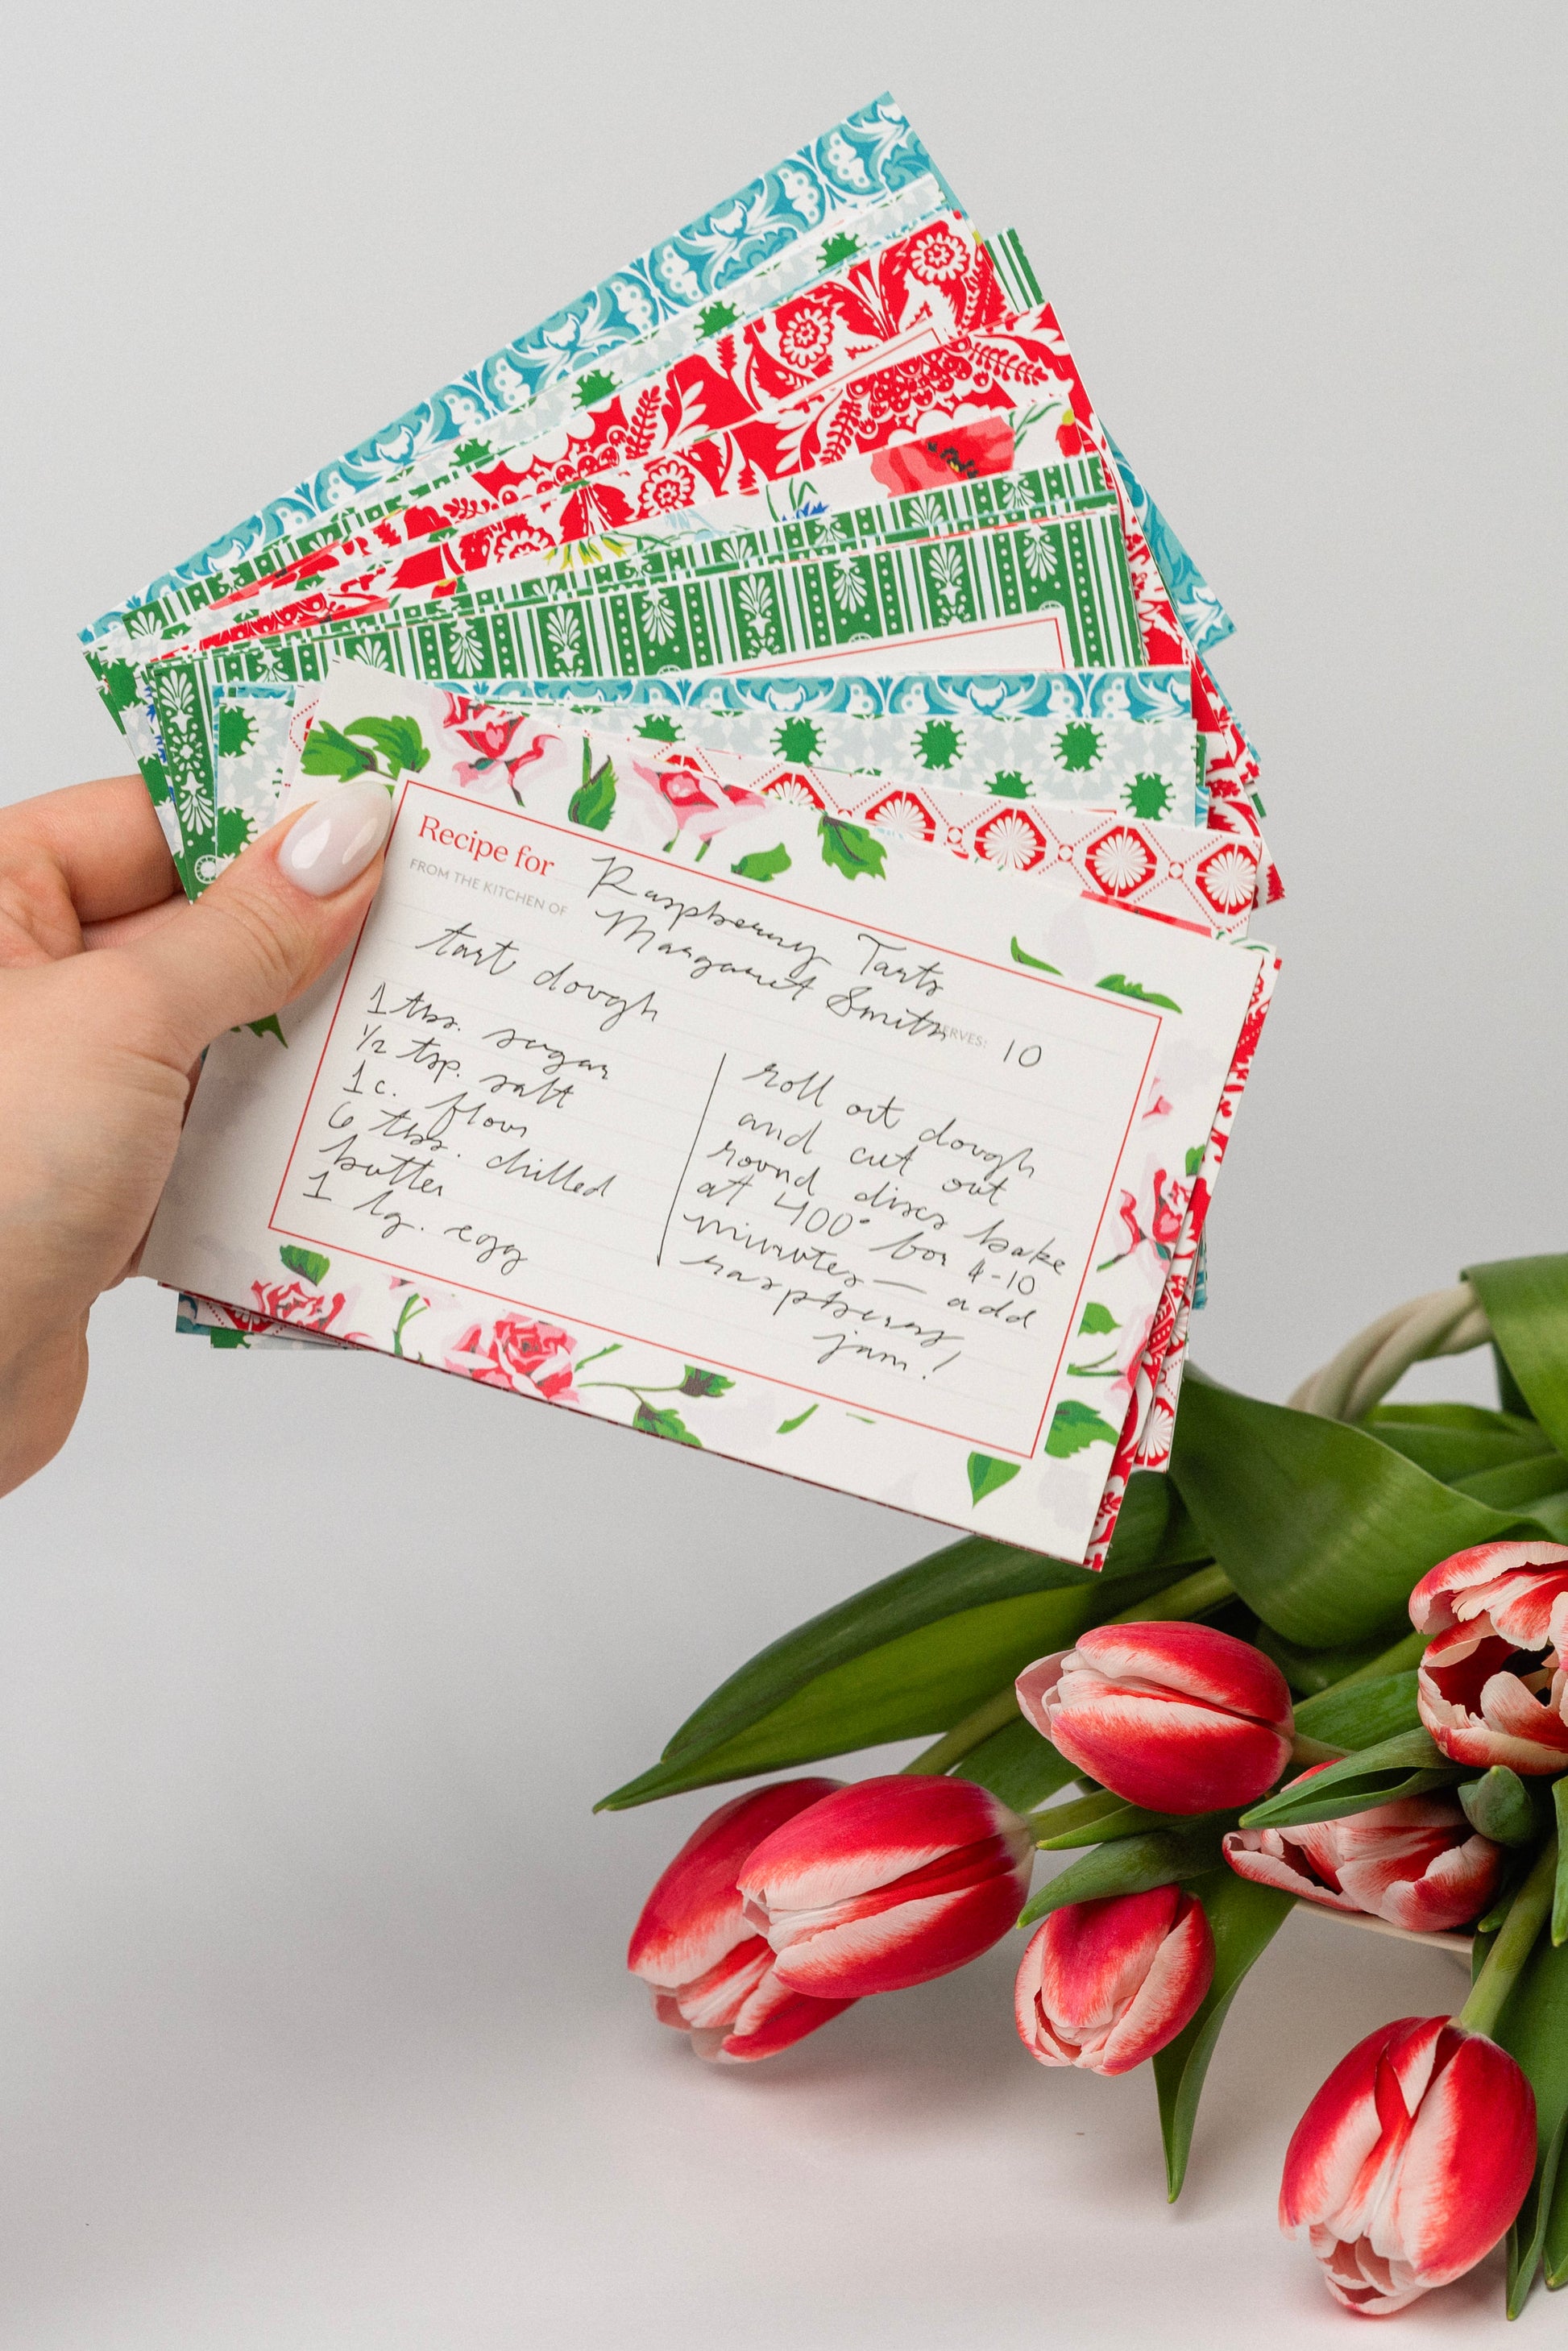 Recipe for Raspberry Tarts
FROM THE KITCHEN OF Margaret Smith
SERVES: 10
tart dough
1 tbs. sugar
1/2 tsp. salt
1 c. flour
6 tbs. chilled
butter
1 lg. egg
roll out dough
and cut out
round discs bake
at 400° for 8-10
minutes — add
raspberry
jam!